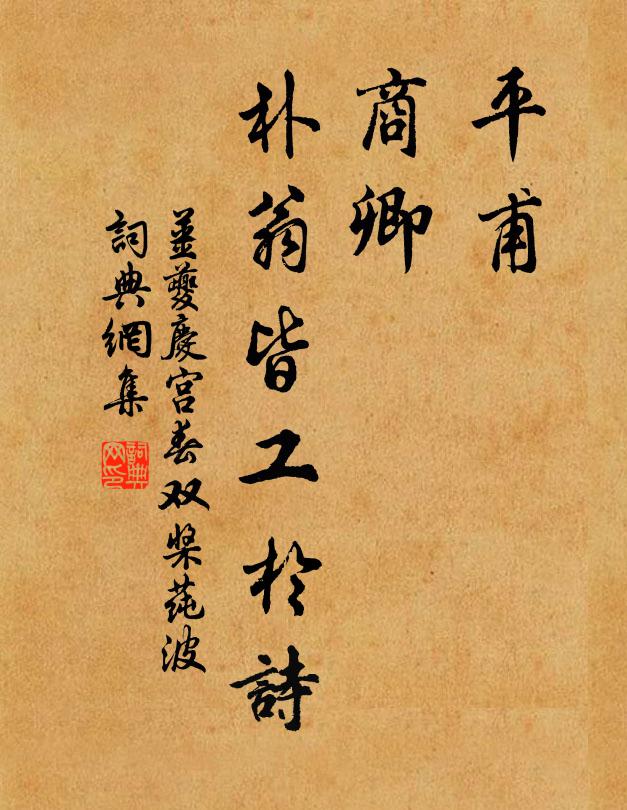 平甫
商卿
朴翁皆工於詩
姜夔慶宮春双槳莼波
詞典網集
詞典網印